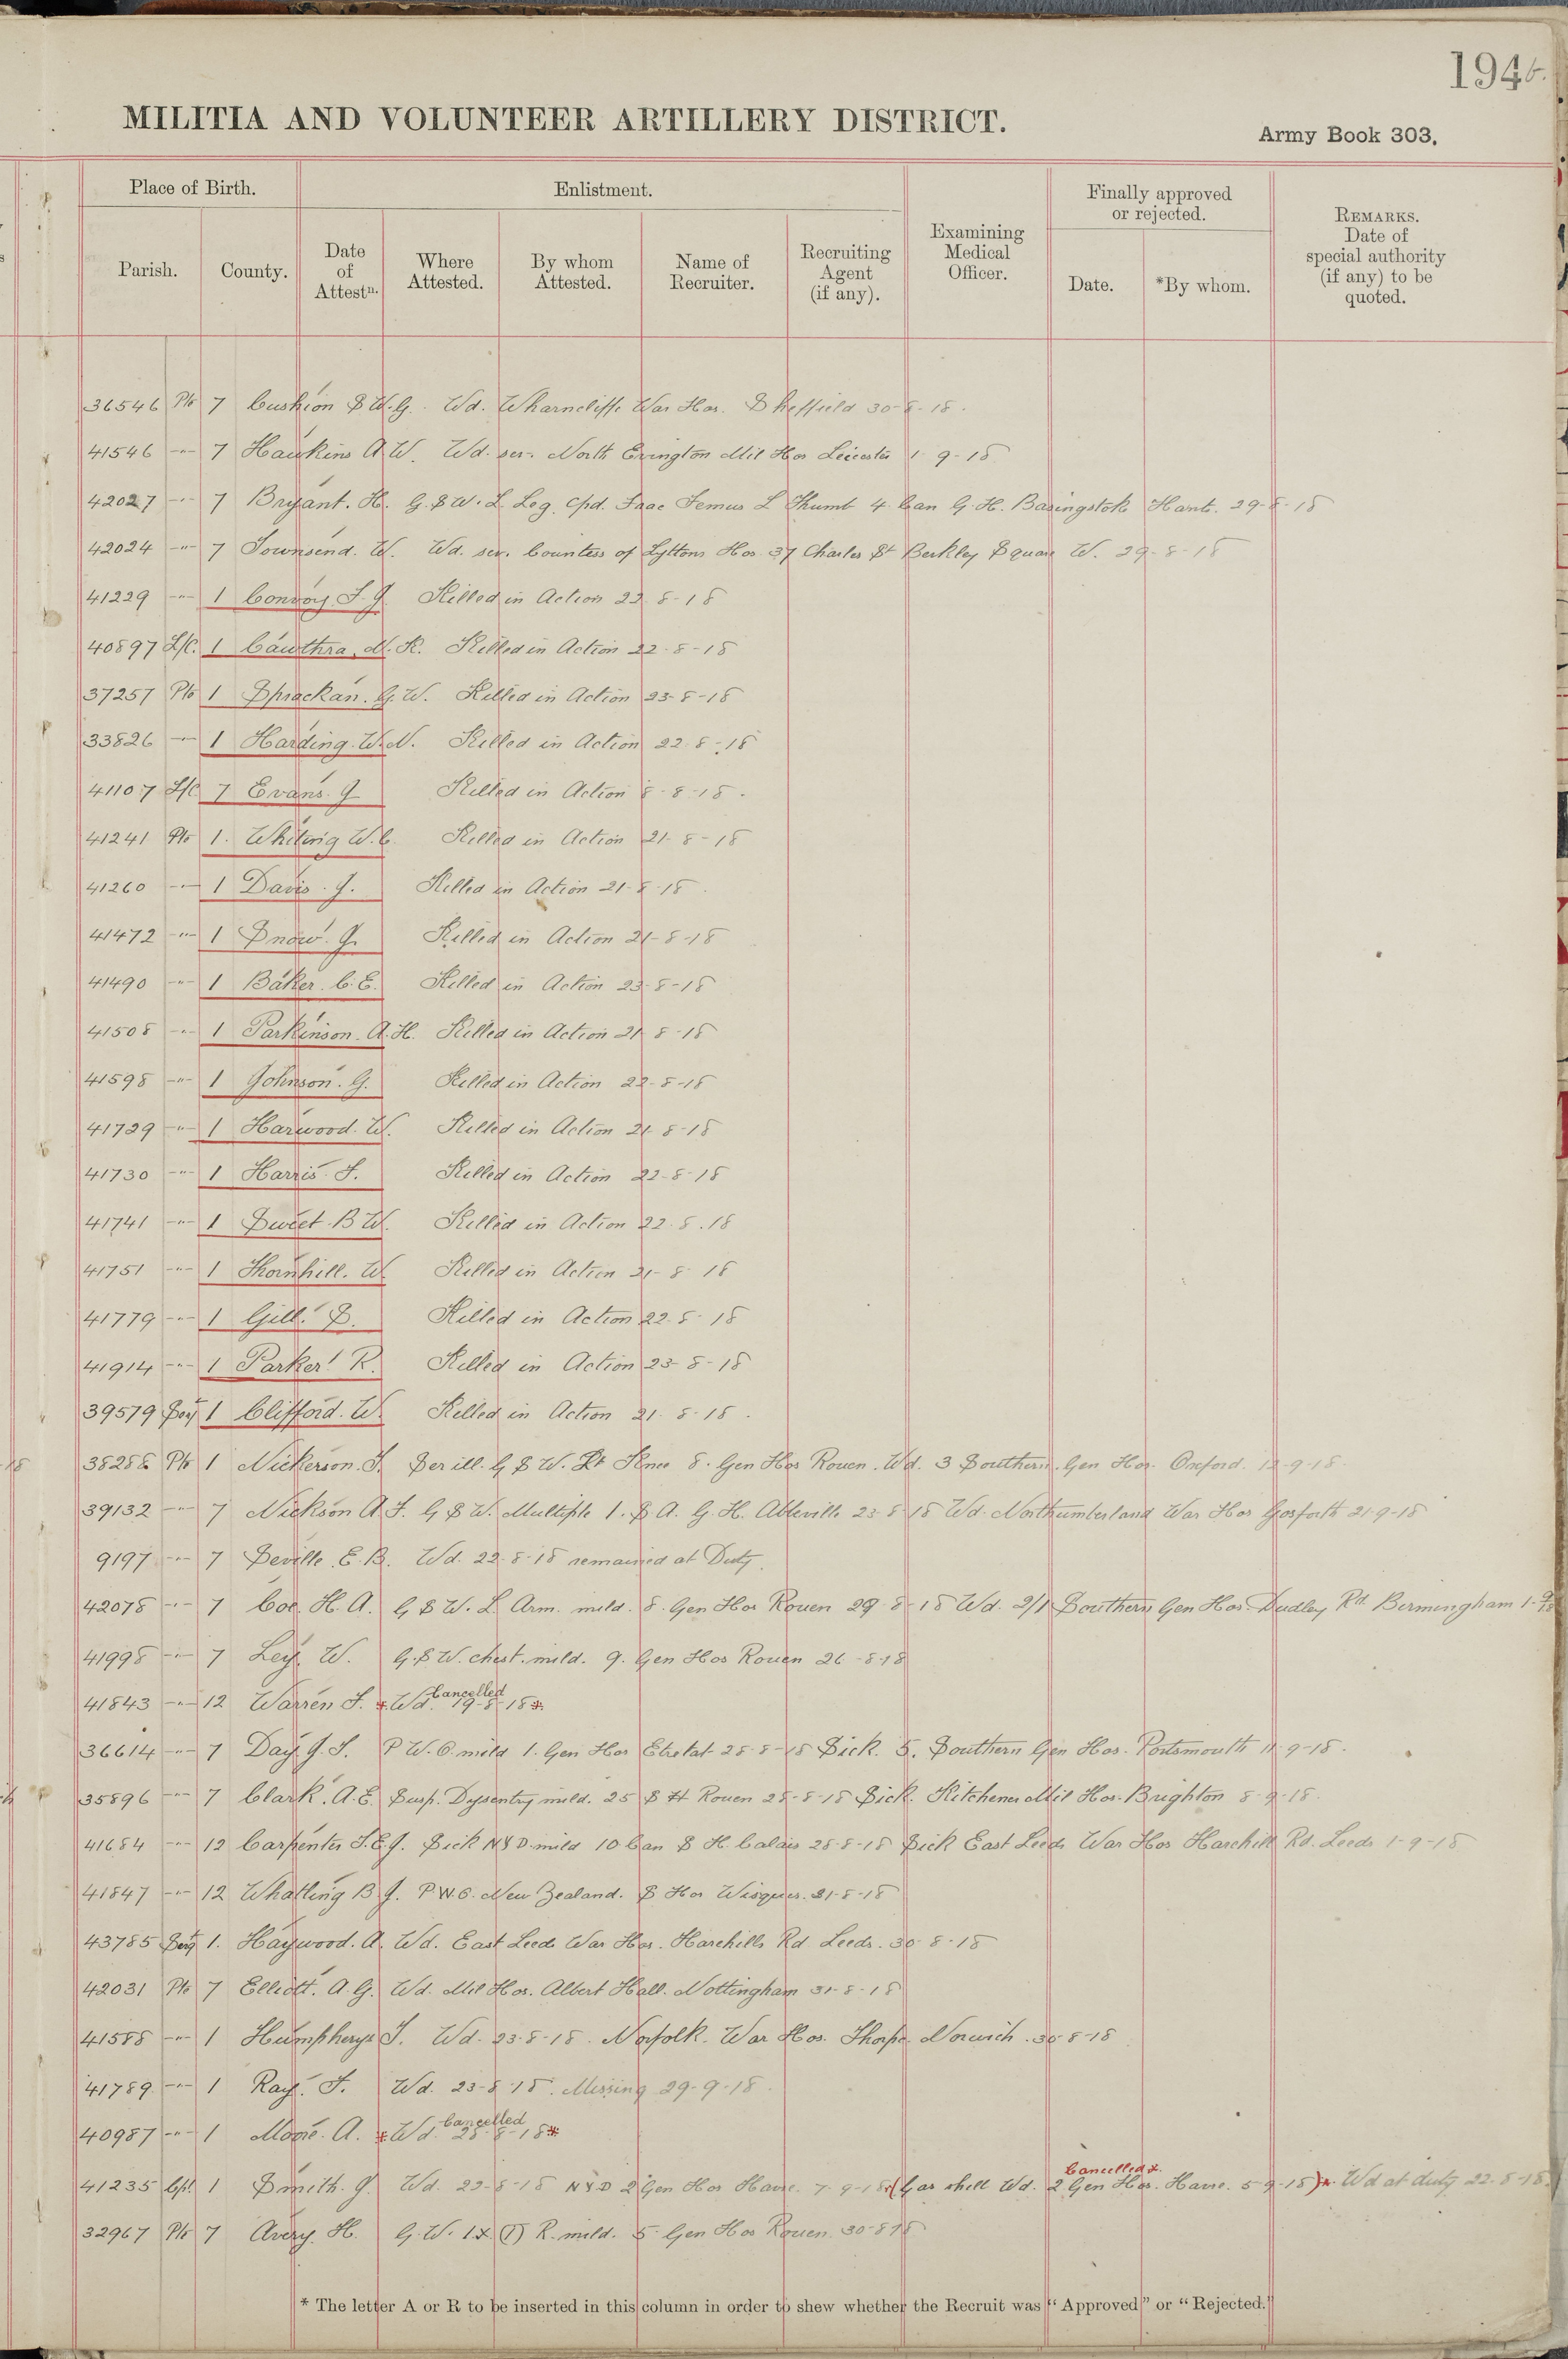 194b.
MILITIA AND VOLUNTEER ARTILLERY DISTRICT.
Army Book 303.
Place of Birth.
Enlistment.
Finally approved
or rejected.
Parish.
County.
Date
of
Attestn.
Where
Attested.
By whom
Attested.
Name of
Recruiter.
Recruiting
Agent
(if any).
Examining
Medical
Officer.
Date.
*By whom.
REMARKS.
Date of
special authority
(if any) to be
quoted.
36546 Pte 7 Cushion S W.G. Wd. Wharncliffe War Hos. Sheffield 30-8-18.
41546 -"- 7 Hawkins A W. Wd. sev. North Evington Mil Hos Leicester 1-9-18
42027 -"- 7 Bryant. H. G.S W. L Leg. Cpd. Frac Femur L Thumb 4 Can G.H. Basingstoke Hants. 29-8-18
42024 -"- 7 Townsend. W. Wd. sev. Countess of Lyttons Hos 37 Charles St Berkley Square W. 29-8-18
41229 -"- 1 Convoy J. J Killed in Action 22-8-18
40897 L/C. 1 Cawthra, N. K. Killed in Action 22-8-18
37257 Pte 1 Sprackan. G. W. Killed in Action 23-8-18
33826 -"- 1 Harding. W. N. Killed in Action 22-8-18
41107 L/C 7 Evans. J Killed in Action 8-8-18.
41241 Pte 1. Whiting W. C. Killed in Action 21-8-18
41260 -"- 1 Davis. J. Killed in Action 21-8-18.
41472 -"- 1 Snow. J. Killed in Action 21-8-18
41490 -"- 1 Baker. C. E. Killed in Action 23-8-18
41508 -"- 1 Parkinson. A. H. Killed in Action 21-8-18
41598 -"- 1 Johnson. G. Killed in Action 22-8-18
41729 -"- 1 Harwood. W. Killed in Action 21-8-18
41730 -"- 1 Harris. F. Killed in Action 22-8-18
41741 -"- 1 Sweet. B W. Killed in Action 22.8.18
41751 -"- 1 Thornhill. W Killed in Action 21-8-18
41779 -"- 1 Gill. S. Killed in Action 22.8-18
41914 -"- 1 Parker R. Killed in Action 23-8-18
39579 Sergt 1 Clifford. W. Killed in Action 21.8.18.
38288 Pte 1 Nickerson. J. Ser ill. G S W. Rt Knee 8. Gen Hos Rouen. Wd. 3 Southern Gen Hos. Oxford. 12-9-18.
39132 -"- 7 Nickson A. J. G S W. Multiple 1. S A. G. H. Abbeville 23-8-18 Wd. Northumberland War Hos Gosforth 21-9-18
9197 -"- 7 Seville. E. B. Wd. 22-8-18 remained at Duty.
42078 -"- 7 Coe. H. A. G S W. L Arm. mild. 8. Gen Hos Rouen 29-8-18 Wd. 2/1 Southern Gen Hos. Dudley Rd. Birmingham 1-9-18
41998 -"- 7 Ley. W. G.S W. chest. mild. 9. Gen Hos Rouen 26-8-18
Cancelled
41843 -"- 12 Warren F. * Wd. 19-8-18 *
36614 -"- 7 Day J. S. P W. O. mild 1. Gen Hos Etretat 28-8-18 Sick. 5. Southern Gen Hos. Portsmouth 11-9-18.
35896 -"- 7 Clark. A. E. Susp. Dysentry mild. 25 S H Rouen 28-8-18 Sick. Kitchener Mil Hos. Brighton 8-9-18.
41684 -"- 12 Carpenter F. E. J. Sick NYD mild 10 Can S H. Calais 28-8-18 Sick East Leeds War Hos Harehill Rd. Leeds 1-9-18
41847 -"- 12 Whatling B J. P W. O. New Zealand. S Hos Wisques. 21-8-18
43785 Sergt 1. Haywood. A. Wd. East Leeds War Hos. Harehills Rd. Leeds. 30-8-18
42031 Pte 7 Elliott. A. G. Wd. Mil Hos. Albert Hall. Nottingham 31-8-18
41588 -"- 1 Humpherys J. Wd. 23-8-18. Norfolk. War Hos. Thorpe Norwich. 30-8-18
41789 -"- 1 Ray. F. Wd. 23-8-18. Missing 29-9-18.
Cancelled
40987 -"- 1 Moore. A. * Wd. 28-8-18 *
Cancelled *.
41235 Cpl. 1 Smith. J. Wd. 22-8-18 NYD 2 Gen Hos Havre. 7-9-18 *(Gas shell Wd. 2 Gen Hos. Havre. 5-9-18)* Wd at duty 22-8-18.
32967 Pte 7 Avery. H. G. W. 1 x (1) R. mild. 5. Gen Hos Rouen. 30-8-18
* The letter A or R to be inserted in this column in order to shew whether the Recruit was “Approved” or “Rejected.”